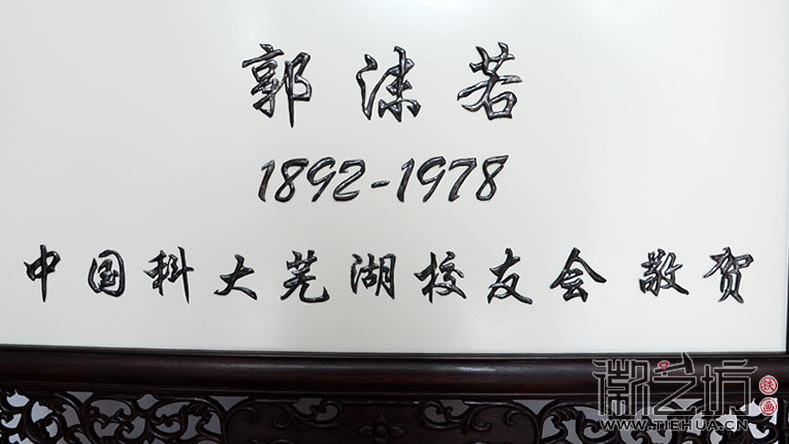 郭沫若
1892-1978
中国科大芜湖校友会 敬贺
徽艺坊
铁画
WWW.TIEHUA.CN